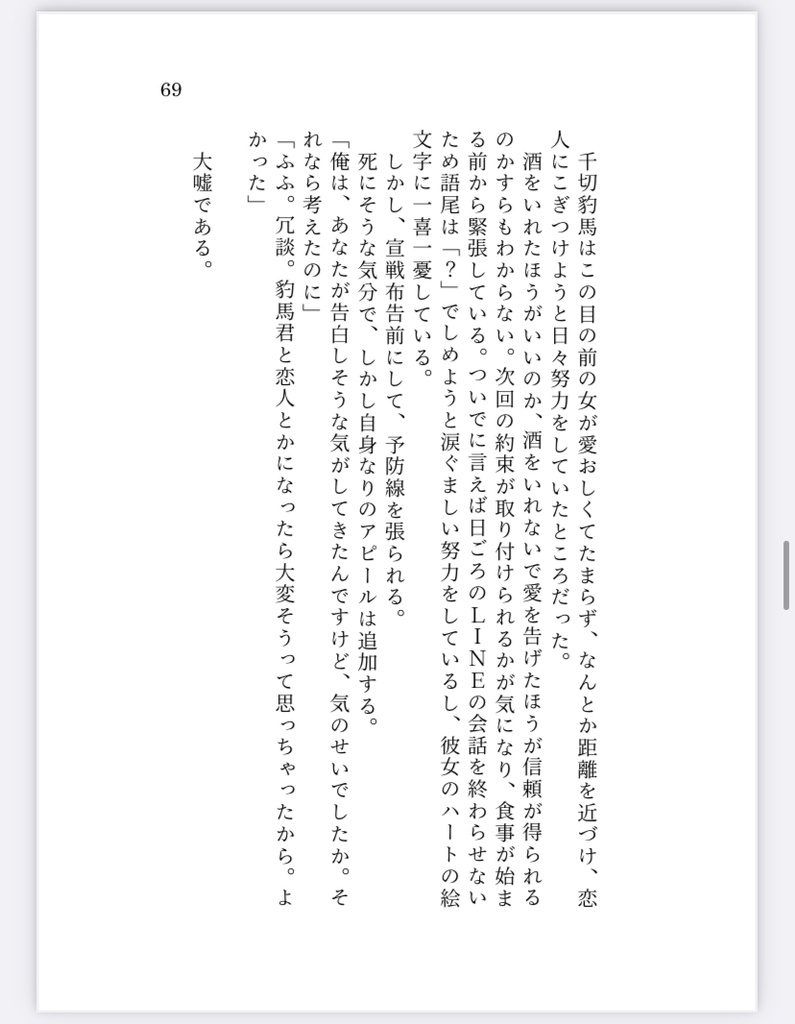 69
千切豹馬はこの目の前の女が愛おしくてたまらず、なんとか距離を近づけ、恋
人にこぎつけようと日々努力をしていたところだった。
酒をいれたほうがいいのか、酒をいれないで愛を告げたほうが信頼が得られる
のかすらもわからない。次回の約束が取り付けられるかが気になり、食事が始ま
る前から緊張している。ついでに言えば日ごろのＬＩＮＥの会話を終わらせない
ため語尾は「？」でしめようと涙ぐましい努力をしているし、彼女のハートの絵
文字に一喜一憂している。
しかし、宣戦布告前にして、予防線を張られる。
死にそうな気分で、しかし自身なりのアピールは追加する。
「俺は、あなたが告白しそうな気がしてきたんですけど、気のせいでしたか。そ
れなら考えたのに」
「ふふ。冗談。豹馬君と恋人とかになったら大変そうって思っちゃったから。よ
かった」
大嘘である。